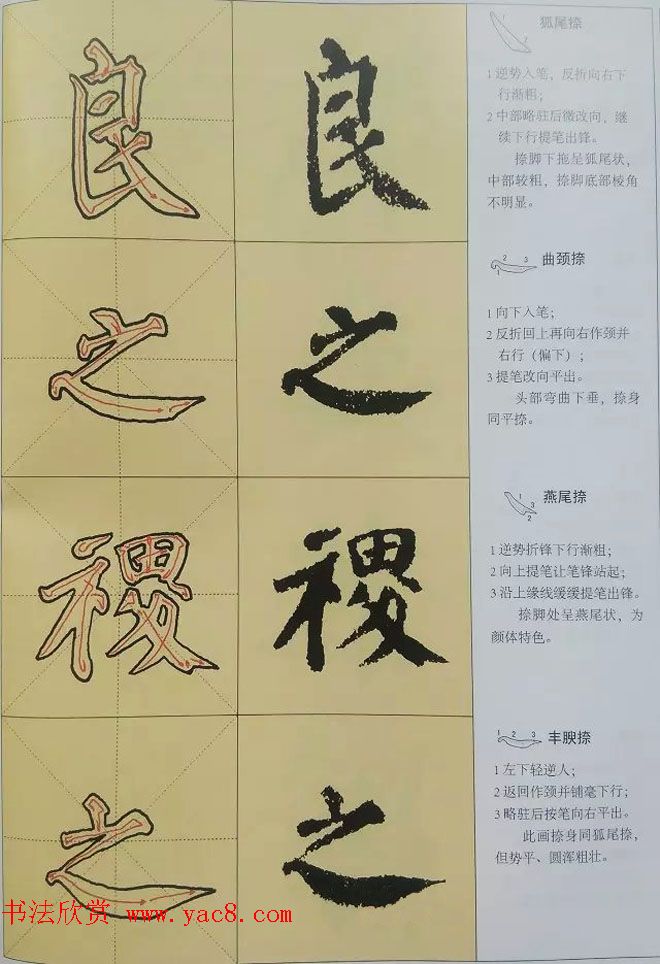 良 良
狐尾捺
1 逆势入笔，反折向右下
行渐粗；
2 中部略驻后微改向，继
续下行提笔出锋。
捺脚下拖呈狐尾状，
中部较粗，捺脚底部棱角
不明显。
之 之
曲颈捺
1 向下入笔；
2 反折回上再向右作颈并
右行（偏下）；
3 提笔改向平出。
头部弯曲下垂，捺身
同平捺。
禝 禝
燕尾捺
1 逆势折锋下行渐粗；
2 向上提笔让笔锋站起；
3 沿上缘线缓缓提笔出锋。
捺脚处呈燕尾状，为
颜体特色。
之 之
丰腴捺
1 左下轻逆人；
2 返回作颈并铺毫下行；
3 略驻后按笔向右平出。
此画捺身同狐尾捺，
但势平、圆浑粗壮。
书法欣赏 www.yac8.com